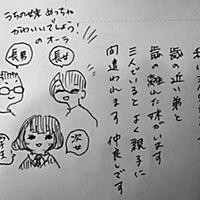 うちの妹 めっちゃ
かわいいでしょう!
のオーラ
長男
長女
次女
歳の近い弟と
歳の離れた妹がいます
三人でいるとよく親子に
間違われます 仲良しです